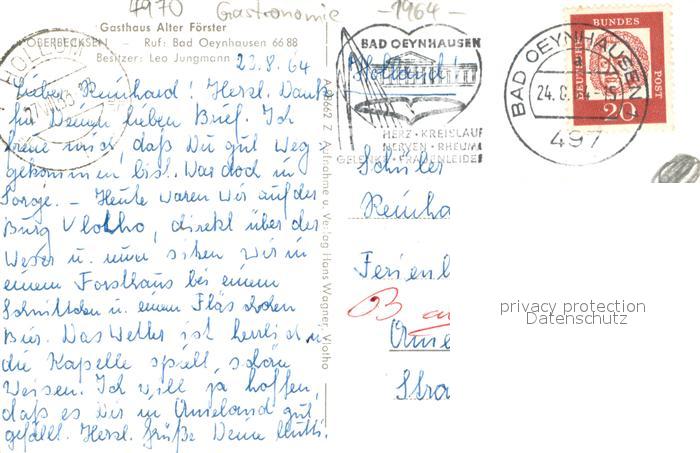 4970 Gastronomie -1964-
Gasthaus Alter Förster
OBERBECKSEN - Ruf: Bad Oeynhausen 66 88
Besitzer: Leo Jungmann
23.8.64
HOLLUM
Lieber Reinhard! Herzl. Dank
für Deinen lieben Brief. Ich
freue mich, daß Du gut weg-
gekommen bist. War doch in
Sorge. - Heute waren wir auf der
Burg Vlotho, direkt über der
Weser u. nun sitzen wir in
einem Forsthaus bei einem
Schnittchen u. einem Fläschchen
Bier. Das Wetter ist herrlich u.
die Kapelle spielt schöne
Weisen. Ich will ja hoffen,
daß es Dir in Ameland gut
gefällt. Herzl. Grüße Deine Mutti.
Z Aufnahme u. Verlag Hans Wagner, Vlotho
BAD OEYNHAUSEN
HERZ · KREISLAUF
NERVEN · RHEUMA
GELENKE · FRAUENLEIDEN
Holland!
BAD OEYNHAUSEN 1
a
24.8.64
497
DEUTSCHE BUNDES POST
20
Schüler
Reinha
Ferienl
Ame
Stra
privacy protection
Datenschutz